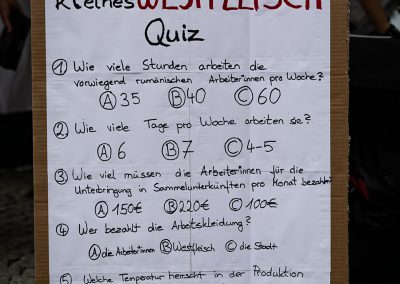 kleines WESTFLEISCH
Quiz
① Wie viele Stunden arbeiten die
vorwiegend rumänischen Arbeiter*innen pro Woche?
Ⓐ 35 Ⓑ 40 Ⓒ 60
② Wie viele Tage pro Woche arbeiten sie?
Ⓐ 6 Ⓑ 7 Ⓒ 4-5
③ Wie viel müssen die Arbeiter*innen für die
Unterbringung in Sammelunterkünften pro Monat bezahlen?
Ⓐ 150€ Ⓑ 220€ Ⓒ 100€
④ Wer bezahlt die Arbeitskleidung?
Ⓐ die Arbeiter*innen Ⓑ Westfleisch Ⓒ die Stadt
⑤ Welche Temperatur herrscht in der Produktion